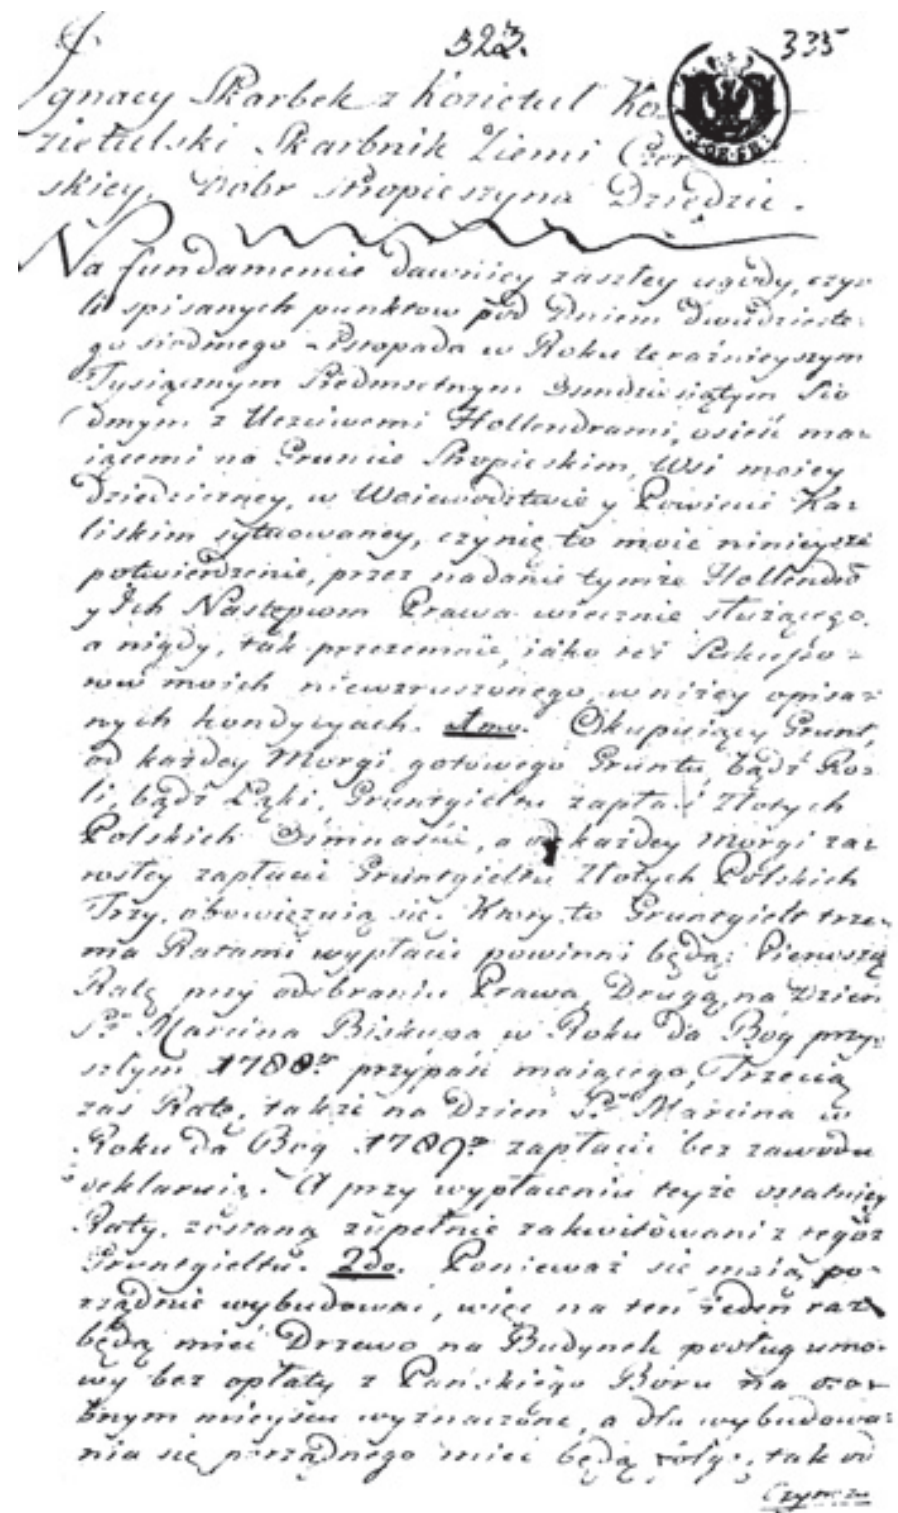 323. 335
Ignacy Skarbek z Kozietuł Ko
zietulski Skarbnik Ziemi Czer
skiey, Dobr Stropieszyna Dziedzic.
Na fundamencie dawniey zaszłey ugody, czy
li spisanych punktow pod Dniem dwudzieste
go siodmego Listopada w Roku teraźnieyszym
Tysiącznym Siedmsetnym Osmdziesiątym Sio
dmym z Uczciwemi Hollendrami, osieść ma
iącemi na Gruncie Stropieskim, Wsi moiey
Dziedziczney, w Woiewodztwie y Powiecie Ka
liskim sytuowaney, czynię to moie ninieysze
potwierdzenie, przez nadanie tymże Hollendrō
y Ich Następcom Prawa wiecznie służącego,
a nigdy, tak przezemnie, iako też Sukcesso
row moich niewzruszonego, w niżey opisa
nych kondycyach. 1mo. Okupuiący Grunt,
od każdey Morgi gotowego Gruntu, bądź Ro
li, bądź Łąki, Gruntgieltu zapłacić Złotych
Polskich Ośmnaście, a od każdey Morgi za
rosłey zapłacić Gruntgieltu Złotych Polskich
Trzy, obowięzuią się. Ktory to Gruntgielt trze
ma Ratami wypłacić powinni będą: Pierwszą
Ratę przy odebraniu Prawa, Drugą, na Dzień
Sgo Marcina Biskupa w Roku da Bog przy
szłym 1788m przypaść maiącego, Trzecią
zaś Ratę, także na Dzień Sgo Marcina w
Roku da Bog 1789m zapłacić bez zawodu
deklaruią. A przy wypłaceniu teyże ostatniey
Raty, zostaną zupełnie zakwitowani z tegoż
Gruntgieltu. 2do. Ponieważ się maią po
rządnie wybudować, więc na ten ieden raz
będą mieć Drzewo na Budynek podług umo
wy bez opłaty z Pańskiego Boru na oso
bnym mieyscu wyznaczone, a dla wybudowa
nia się porządnego mieć będą, tak od
Czynszu